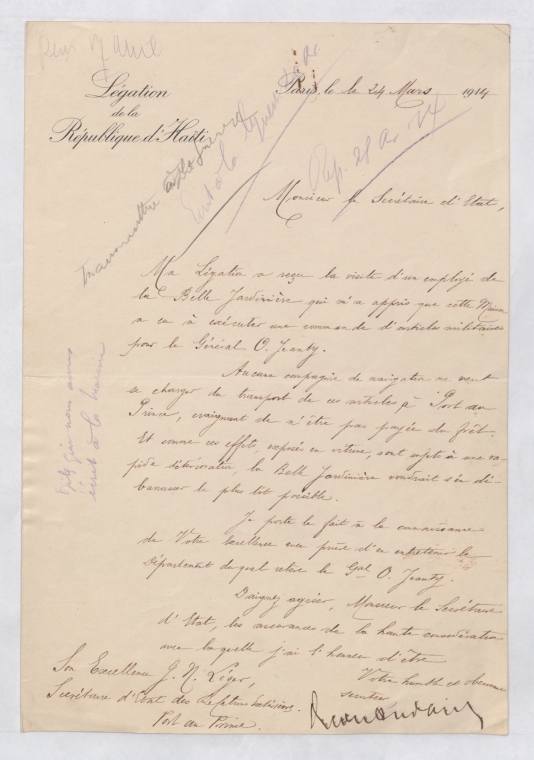 Légation
de la
République d'Haïti
Paris, le le 24 Mars 1914
Rep. 28 Av. 14
Transmettre à la Guerre
écrit à la
Monsieur le Secrétaire d'Etat,
Ma Légation a reçu la visite d'un employé de
la Belle Jardinière qui m'a appris que cette Maison
a eu à exécuter une commande d'articles militaires
pour le Général O. Jeanty.
Aucune compagnie de navigation ne veut
se charger du transport de ces articles à Port au
Prince, craignant de n'être pas payée du frêt.
Et comme ces effets, exposés en vitrine, sont sujets à une ra-
pide détérioration, la Belle Jardinière voudrait s'en dé-
barrasser le plus tôt possible.
Je porte le fait à la connaissance
de Votre Excellence avec prière d'en entretenir le
Département duquel relève le Gal O. Jeanty.
Daignez agréer, Monsieur le Secrétaire
d'Etat, les assurances de la haute considération
avec laquelle j'ai l'honneur d'être
Votre humble et obéissant
serviteur
Son Excellence J. N. Léger,
Secrétaire d'Etat des Relations Extérieures.
Port au Prince.
que nous avons
écrit à la Guerre